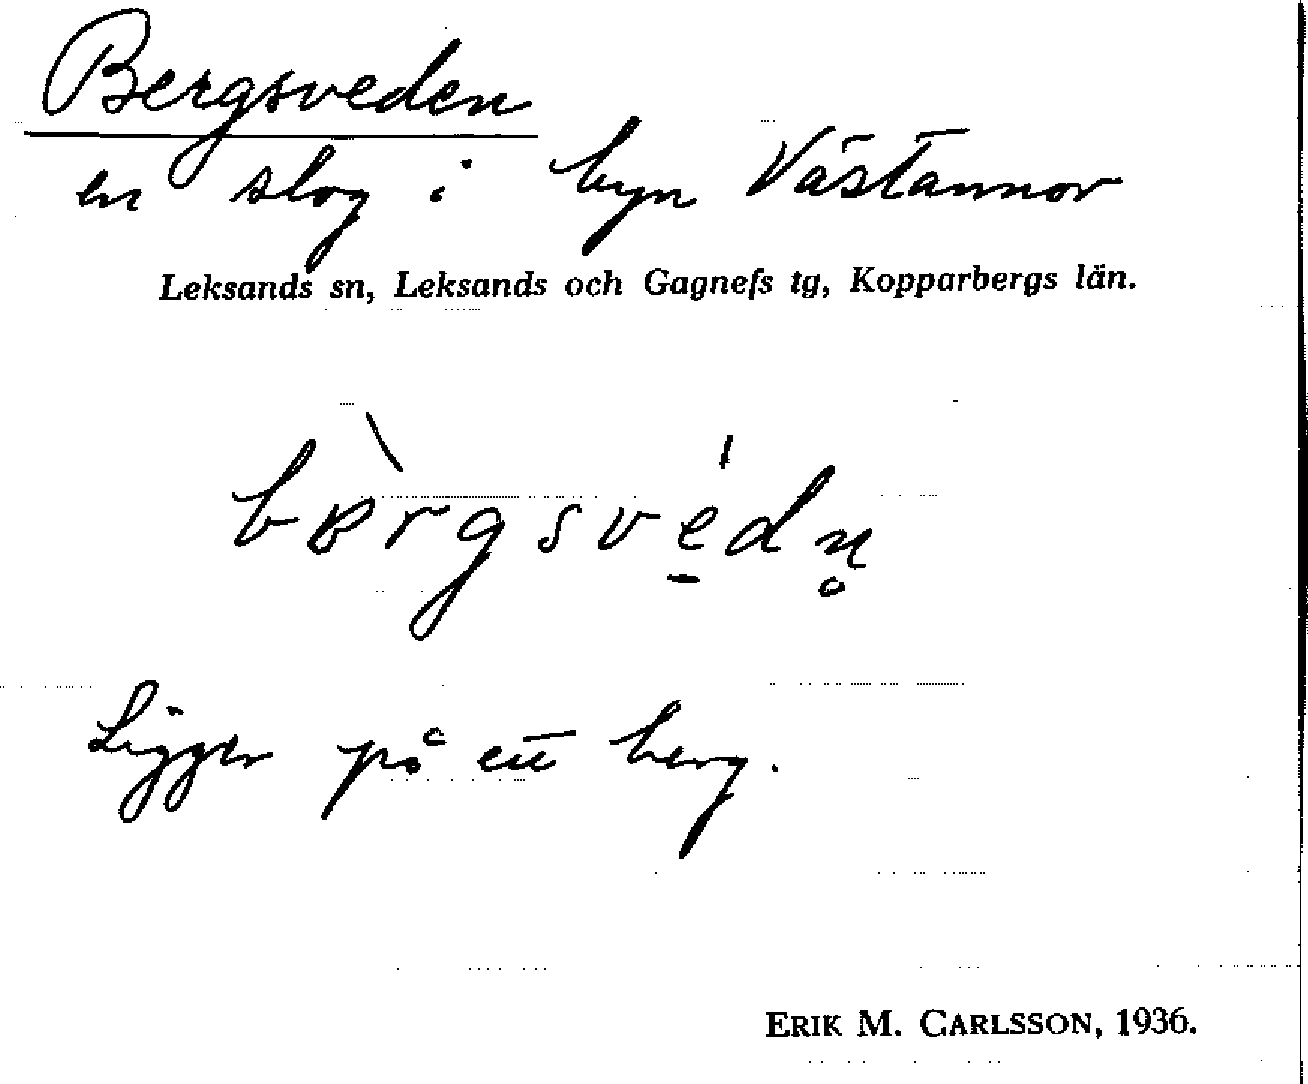 Bergsveden
en slog i byn Västannor
Leksands sn, Leksands och Gagnefs tg, Kopparbergs län.
Ligger på ett berg.
ERIK M. CARLSSON, 1936.